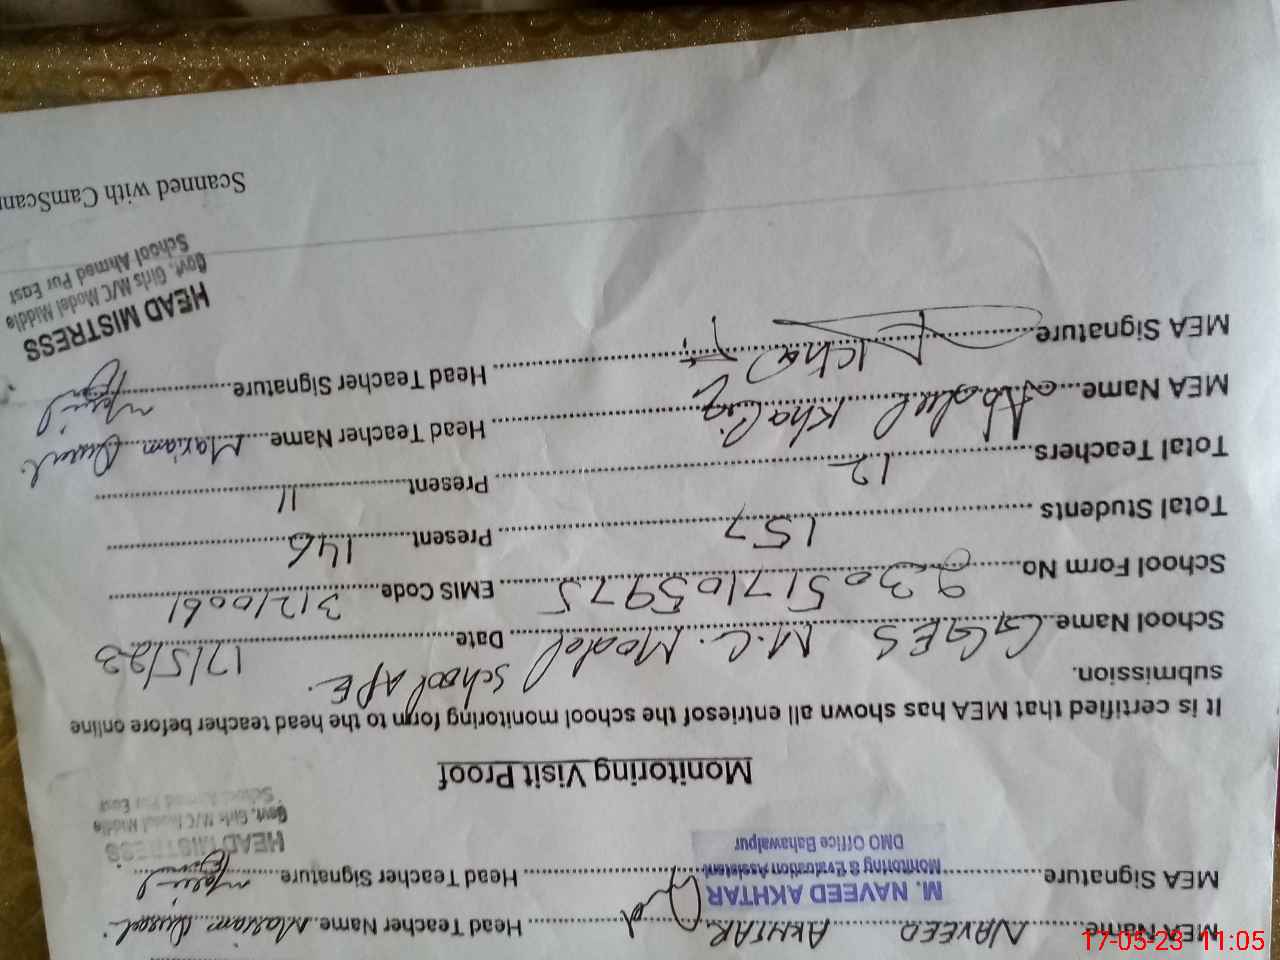 MEA Name NAVEED AKHTAR Head Teacher Name Mariam
MEA Signature Head Teacher Signature
M. NAVEED AKHTAR
Monitoring & Evaluation Assistant
DMO Office Bahawalpur
HEAD MISTRESS
Govt. Girls M/C Model Middle
School Ahmed Pur East
Monitoring Visit Proof
It is certified that MEA has shown all entriesof the school monitoring form to the head teacher before online
submission.
School Name GGES M.C. Model School APE. Date 17/5/23
School Form No 230517105975 EMIS Code 31210061
Total Students 157 Present 146
Total Teachers 12 Present 11
MEA Name Abdul Khaliq Head Teacher Name Mariam
MEA Signature Head Teacher Signature
HEAD MISTRESS
Govt. Girls M/C Model Middle
School Ahmed Pur East
Scanned with CamScann
17-05-23 11:05